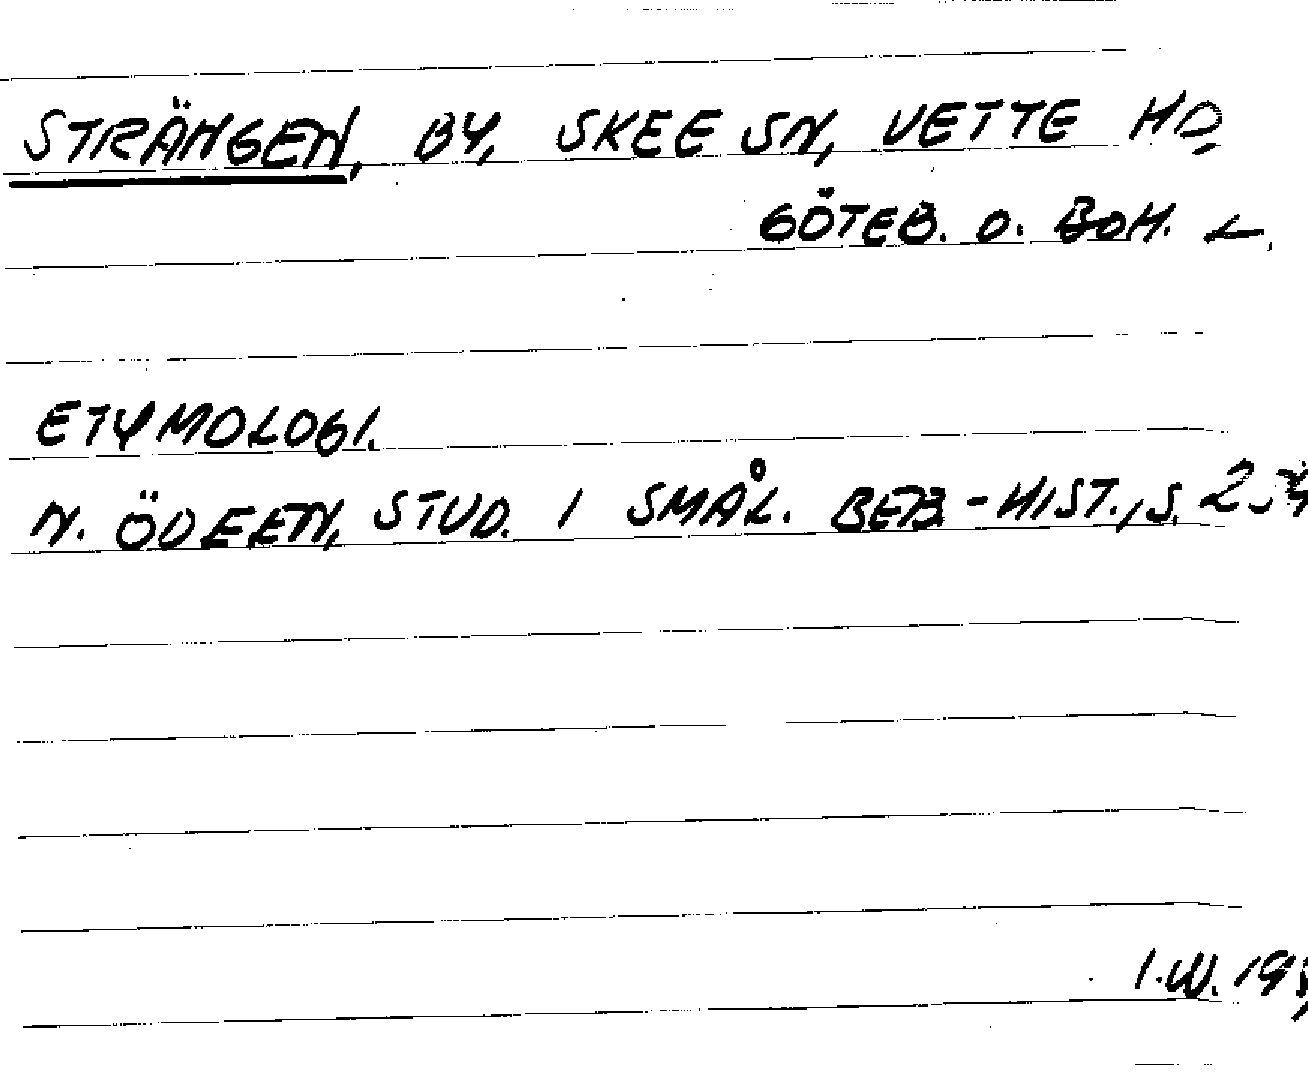 STRÄNGEN, BY, SKEE SN, VETTE HD,
GÖTEB. O. BOH. L.
ETYMOLOGI.
N. ÖDEEN, STUD. I SMÅL. BEB-HIST., S.
I.W.